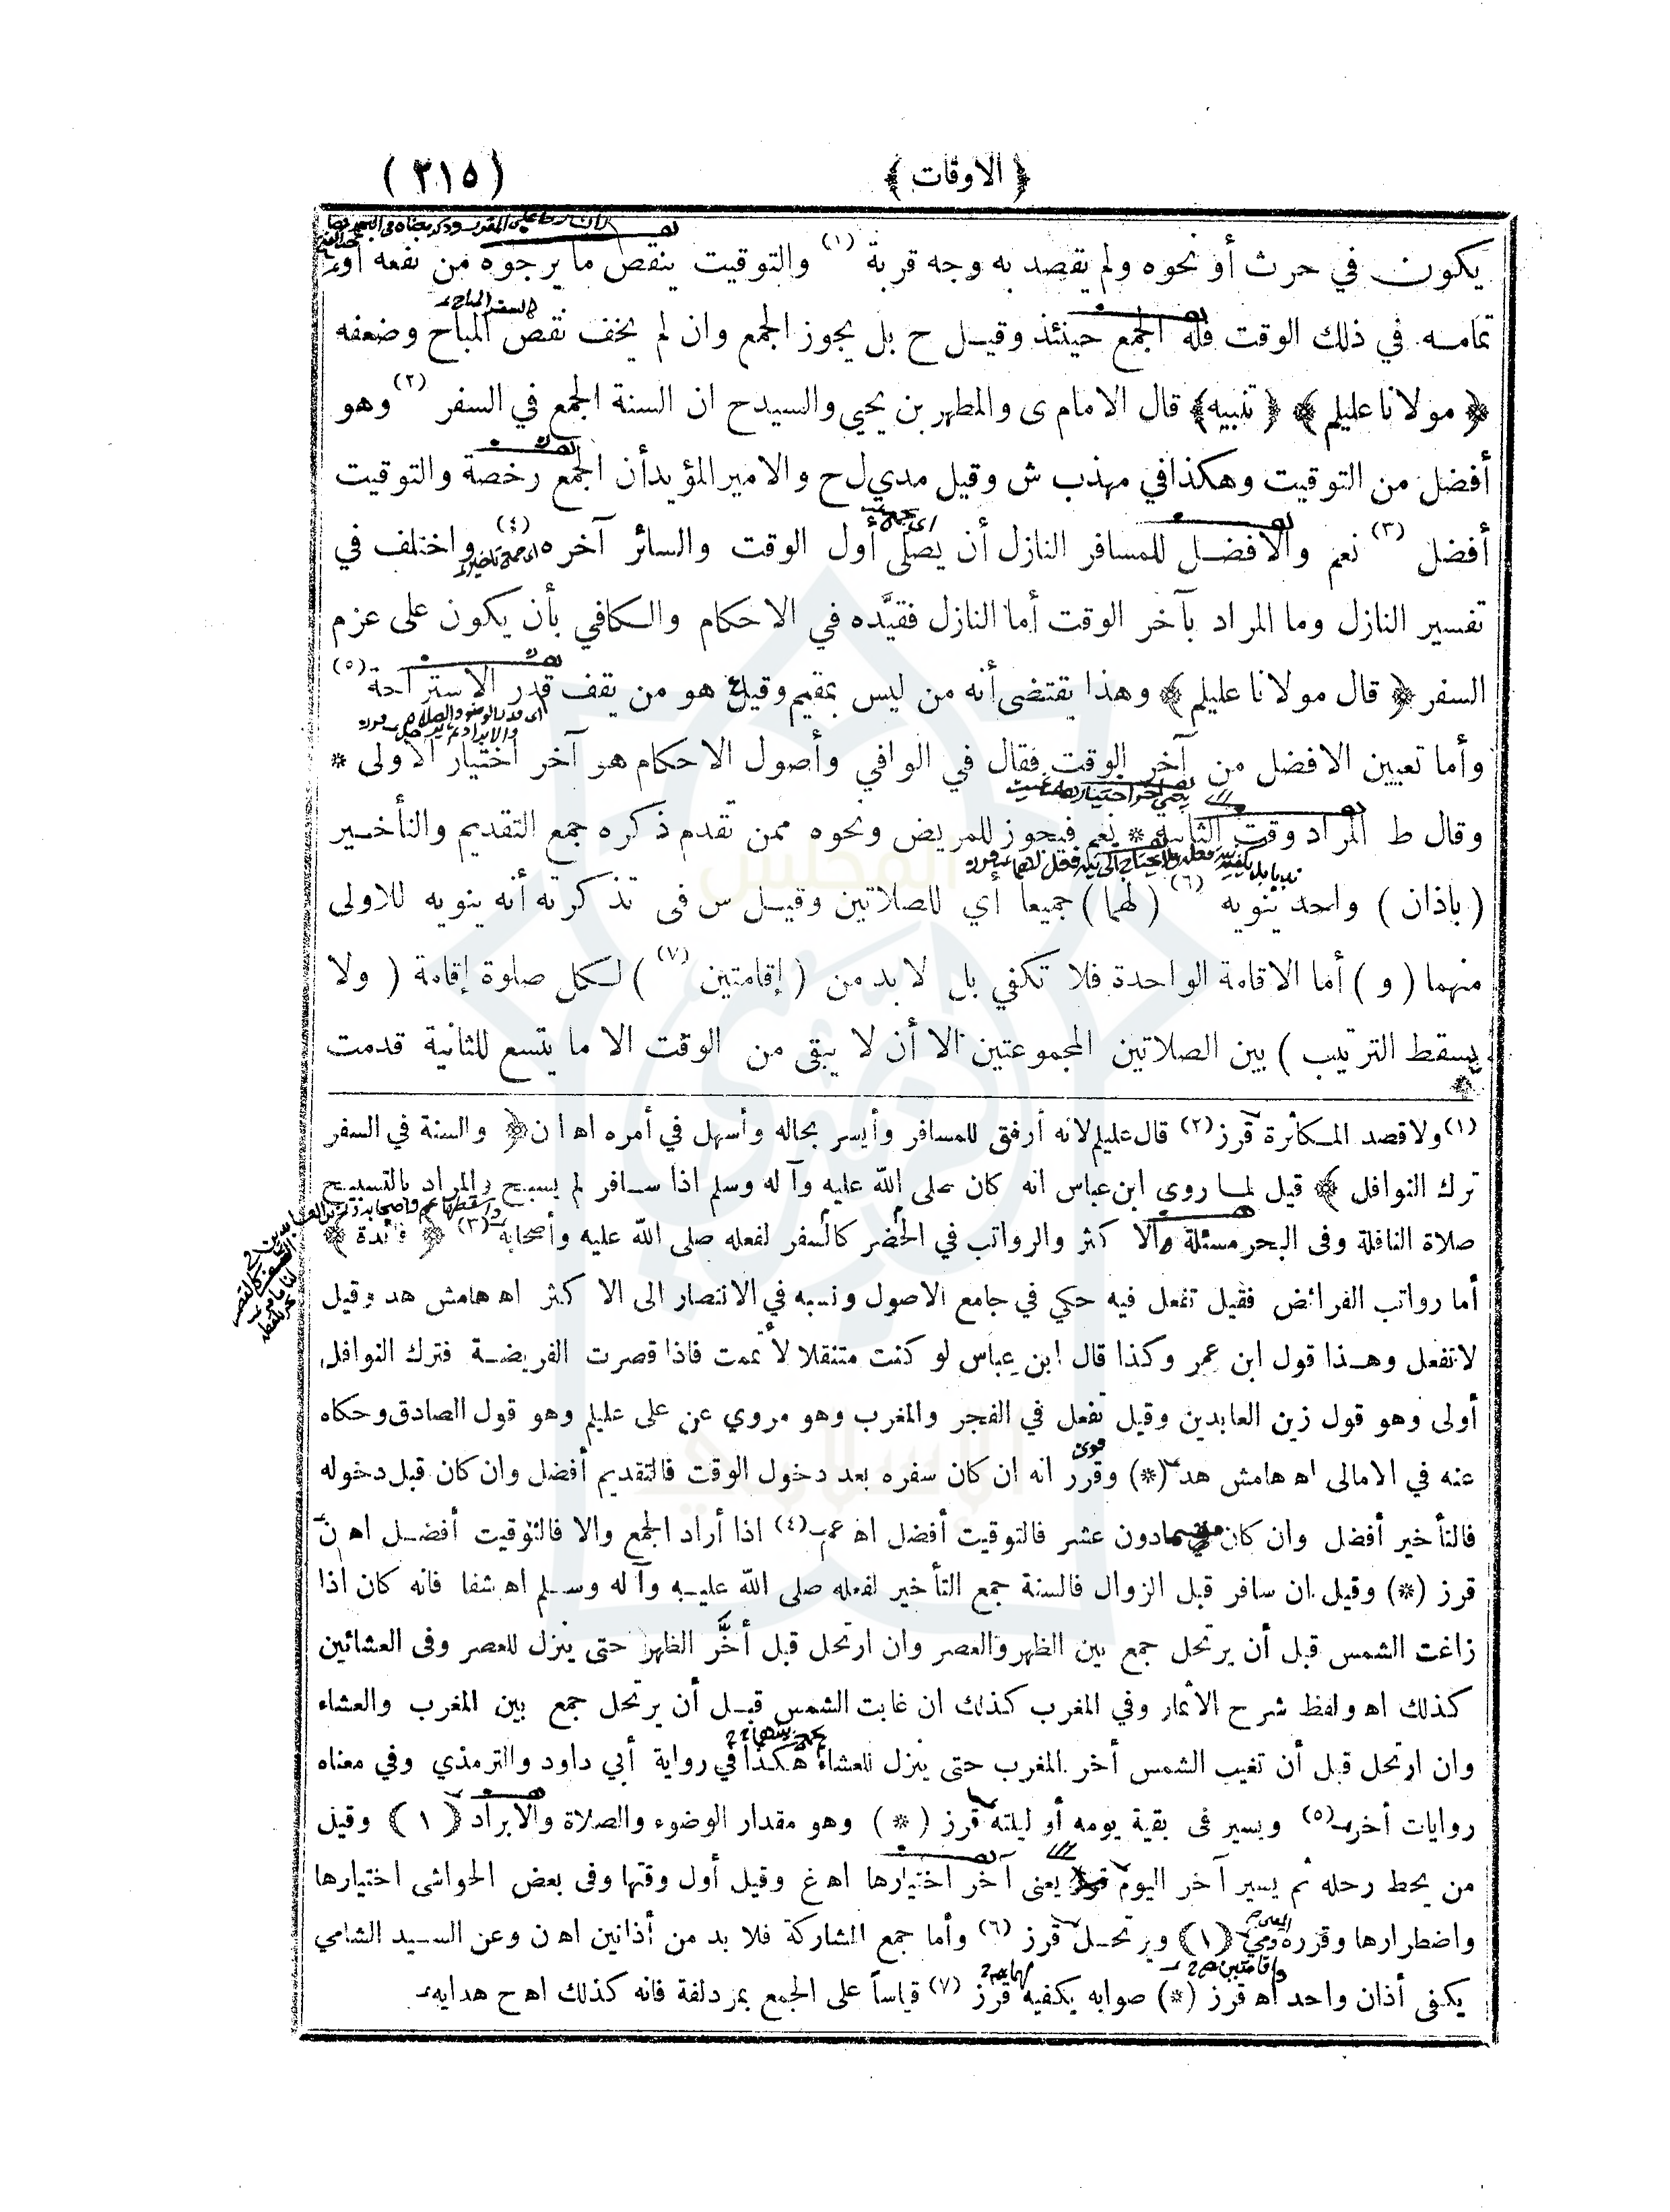 ﴿ الاوقات ﴾ (٢١٥)
يكون في حرث أو نحوه ولم يقصد به وجه قربة (١) والتوقيت ينقص ما يرجوه من نفعه أو
تمامه في ذلك الوقت فله الجمع حينئذ وقيل ح بل يجوز الجمع وان لم يخف نقص المباح وضعفه
﴿ مولانا عليلم ﴾ ﴿ تنبيه ﴾ قال الامام ى والمطهر بن يحيى والسيد ح ان السنة الجمع في السفر (٢) وهو
أفضل من التوقيت وهكذا في مهذب ش وقيل مدي ل ح والامير المؤيد أن الجمع رخصة والتوقيت
أفضل (٣) نعم والافضل للمسافر النازل أن يصلى أول الوقت والسائر آخره (٤) واختلف في
تفسير النازل وما المراد بآخر الوقت أما النازل فقيَّده في الاحكام والكافي بأن يكون على عزم
السفر ﴿ قال مولانا عليلم ﴾ وهذا يقتضى أنه من ليس بمقيم وقيل ع هو من يقف قدر الاستراحة (٥)
وأما تعيين الافضل من آخر الوقت فقال في الوافي وأصول الاحكام هو آخر اختيار الاولى *
وقال ط المراد وقت الثانية * نعم فيجوز للمريض ونحوه ممن تقدم ذكره جمع التقديم والتأخير
( باذان ) واحد ينويه (٦) ( لهما ) جميعا أي للصلاتين وقيل س فى تذكرته أنه ينويه للاولى
منهما ( و ) أما الاقامة الواحدة فلا تكفي بل لا بد من ( إقامتين (٧) ) لكل صلوة إقامة ( ولا
يسقط الترتيب ) بين الصلاتين المجموعتين الا أن لا يبقى من الوقت الا ما يتسع للثانية قدمت
(١) ولا قصد المكاثرة قرز (٢) قال عليلم لانه أرفق للمسافر وأيسر بحاله وأسهل في أمره اه ا ن ﴿ والسنة في السفر
ترك النوافل ﴾ قيل لما روى ابن عباس انه كان صلى الله عليه وآله وسلم اذا سافر لم يسبح والمراد بالتسبيح
صلاة النافلة وفى البحر مسئلة والا كثر والرواتب في الحضر كالسفر لفعله صلى الله عليه وأصحابه (٣) ﴿ فائدة ﴾
أما رواتب الفرائض فقيل تفعل فيه حكي في جامع الاصول ونسبه في الانتصار الى الا كثر اه هامش هد وقيل
لا تفعل وهذا قول ابن عمر وكذا قال ابن عباس لو كنت متنقلا لأتممت فاذا قصرت الفريضة فترك النوافل
أولى وهو قول زين العابدين وقيل تفعل في الفجر والمغرب وهو مروي عن على عليلم وهو قول الصادق وحكاه
عنه في الامالى اه هامش هد (*) وقرر انه ان كان سفره بعد دخول الوقت فالتقديم أفضل وان كان قبل دخوله
فالتأخير أفضل وان كان دون عشر فالتوقيت أفضل اه عم (٤) اذا أراد الجمع والا فالتوقيت أفضل اه ن
قرز (*) وقيل ان سافر قبل الزوال فالسنة جمع التأخير لفعله صلى الله عليه وآله وسلم اه شفا فانه كان اذا
زاغت الشمس قبل أن يرتحل جمع بين الظهر والعصر وان ارتحل قبل أخَّر الظهر حتى ينزل للعصر وفى العشائين
كذلك اه ولفظ شرح الأثمار وفي المغرب كذلك ان غابت الشمس قبل أن يرتحل جمع بين المغرب والعشاء
وان ارتحل قبل أن تغيب الشمس أخر المغرب حتى ينزل للعشاء هكذا في رواية أبي داود والترمذي وفي معناه
روايات أخر (٥) ويسير فى بقية يومه أو ليلته قرز (*) وهو مقدار الوضوء والصلاة والابراد (١) وقيل
من يحط رحله ثم يسير آخر اليوم يعنى آخر اختيارها اه غ وقيل أول وقتها وفى بعض الحواشى اختيارها
واضطرارها وقرره مي (١) ويرتحل قرز (٦) وأما جمع المشاركة فلا بد من أذانين اه ن وعن السيد الشامي
يكفى أذان واحد اه قرز (*) صوابه يكفيه قرز (٧) قياساً على الجمع بمزدلفة فانه كذلك اه ح هدايه